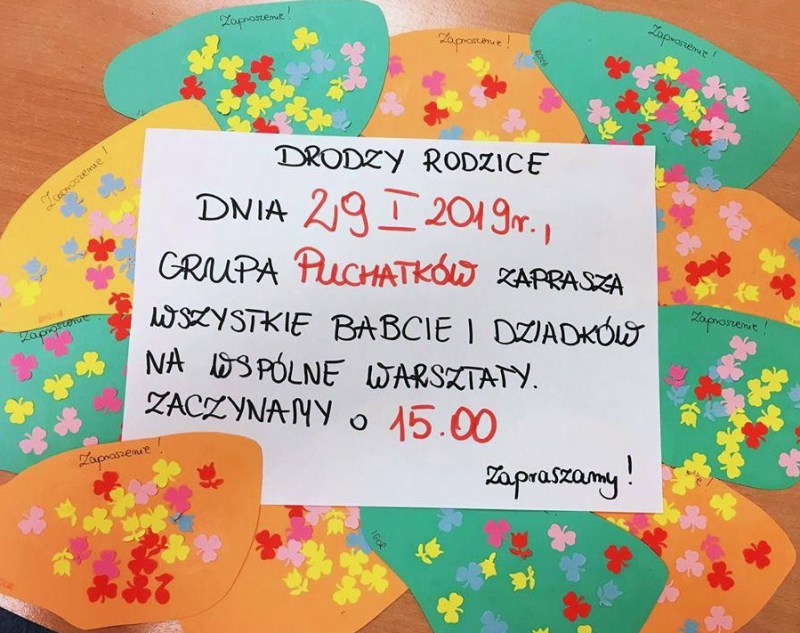 Zaproszenie!
Zaproszenie!
Zaproszenie!
Zaproszenie!
DRODZY RODZICE
DNIA 29 I 2019r.,
GRUPA PUCHATKÓW ZAPRASZA
WSZYSTKIE BABCIE I DZIADKÓW
NA WSPÓLNE WARSZTATY.
ZACZYNAMY O 15.00
Zapraszamy!
Zaproszenie!
Zaproszenie!
Zaproszenie!
IGOR